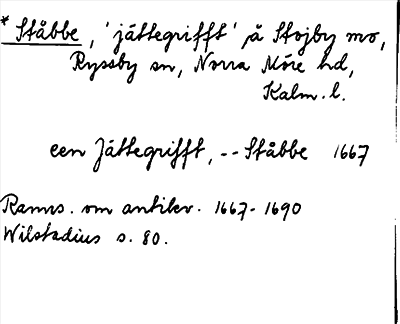 * Ståbbe, 'jättegrifft' å Stojby mo,
Ryssby sn, Norra Möre hd,
Kalm. l.
een Jättegrifft, -- Ståbbe 1667
Ranns. om antikv. 1667-1690
Wilstadius s. 80.